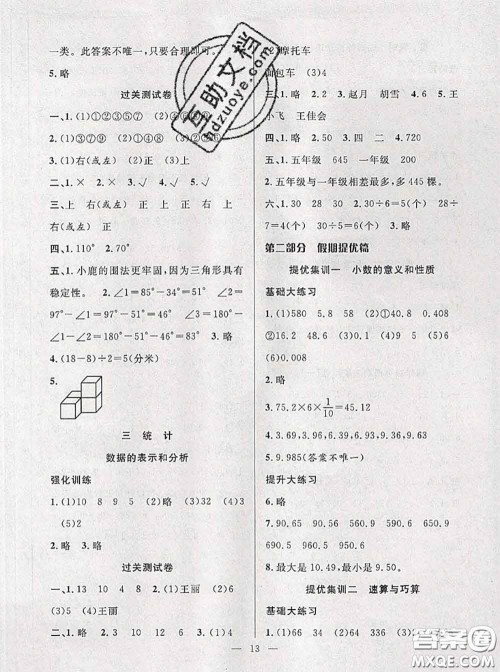 一类。此答案不唯一,只要合理即可。
5.略
过关测试卷
一、1.(1)③⑦⑨ (2)①②④⑥
(3)①③⑦⑨ (4)②④⑤⑥⑧
3.(1)右(或左) 正 (2)正 上
(3)上
二、1.× 2.× 3.√ 4.√
三、上 右(或左) 正 上 正 右(或左)
右(或左) 正 上
四、1.110° 2.70°
五、1.小鹿的围法更牢固,因为三角形具有
稳定性。 2.∠1=85°-51°=34° ∠2=
97°-∠1=97°-34°=63° 3.∠2=180°
-∠1=180°-45°=135° 3.略
4.(18-8)÷2=5(分米)
5.
三 统 计
数据的表示和分析
强化训练
1.(1)10 8 9 5 (2)略 (3)32 (4)3
(5)2
2.略 3.略
过关测试卷
一、1.(1)略 (2)略 (3)①王丽 ②6
③3 (4)王丽
二、1.略 2.3 10 12 6 3.(1)略
(2)摩托车
面包车 (3)4
三、1.略 2.3 3.赵月 胡雪 4.6 5.王
小飞 王佳会
四、1.略 2.50 3.四 二 4.略
五、1.五年级 645 一年级 200
2.五年级与一年级相差最多,多 445 棵。
六、1.略 2.30 28 3.(1)略 (2)28÷
7=4(个) 30÷5=6(个) (3)略
第二部分 假期提优篇
提优集训一 小数的意义和性质
基础大练习
1.(1)580 5.8 (2)①40.8 0.408
②16.2 48.6 (3)9 0.01 (4)51 (5)略
(6)0.008
2.略
3.75.2×6×1/10=45.12
4.3.69,3.96,6.39,6.93,9.36,9.63
5.9.985(答案不唯一)
提升大练习
6.略
7.10.56 10.65 90.56 90.65
8.最大是 10.49,最小是 9.50。
提优集训二 速算与巧算
基础大练习
1.(1)66 34 (2)64 136
· 13 ·
互助文档
hdzuoye.com
答案圈
MXQE.COM